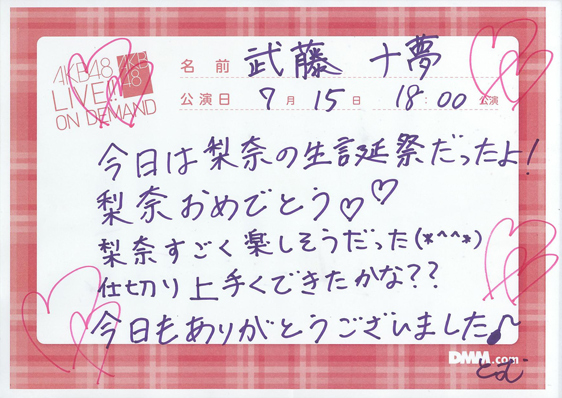 AKB48
LIVE!!
ON DEMAND
AKB
48
名前 武藤 十夢
公演日 7月15日 18:00公演
今日は梨奈の生誕祭だったよ!
梨奈おめでとう♡♡
梨奈すごく楽しそうだった(*^^*)
仕切り上手くできたかな??
今日もありがとうございました♪
DMM.com
とむ